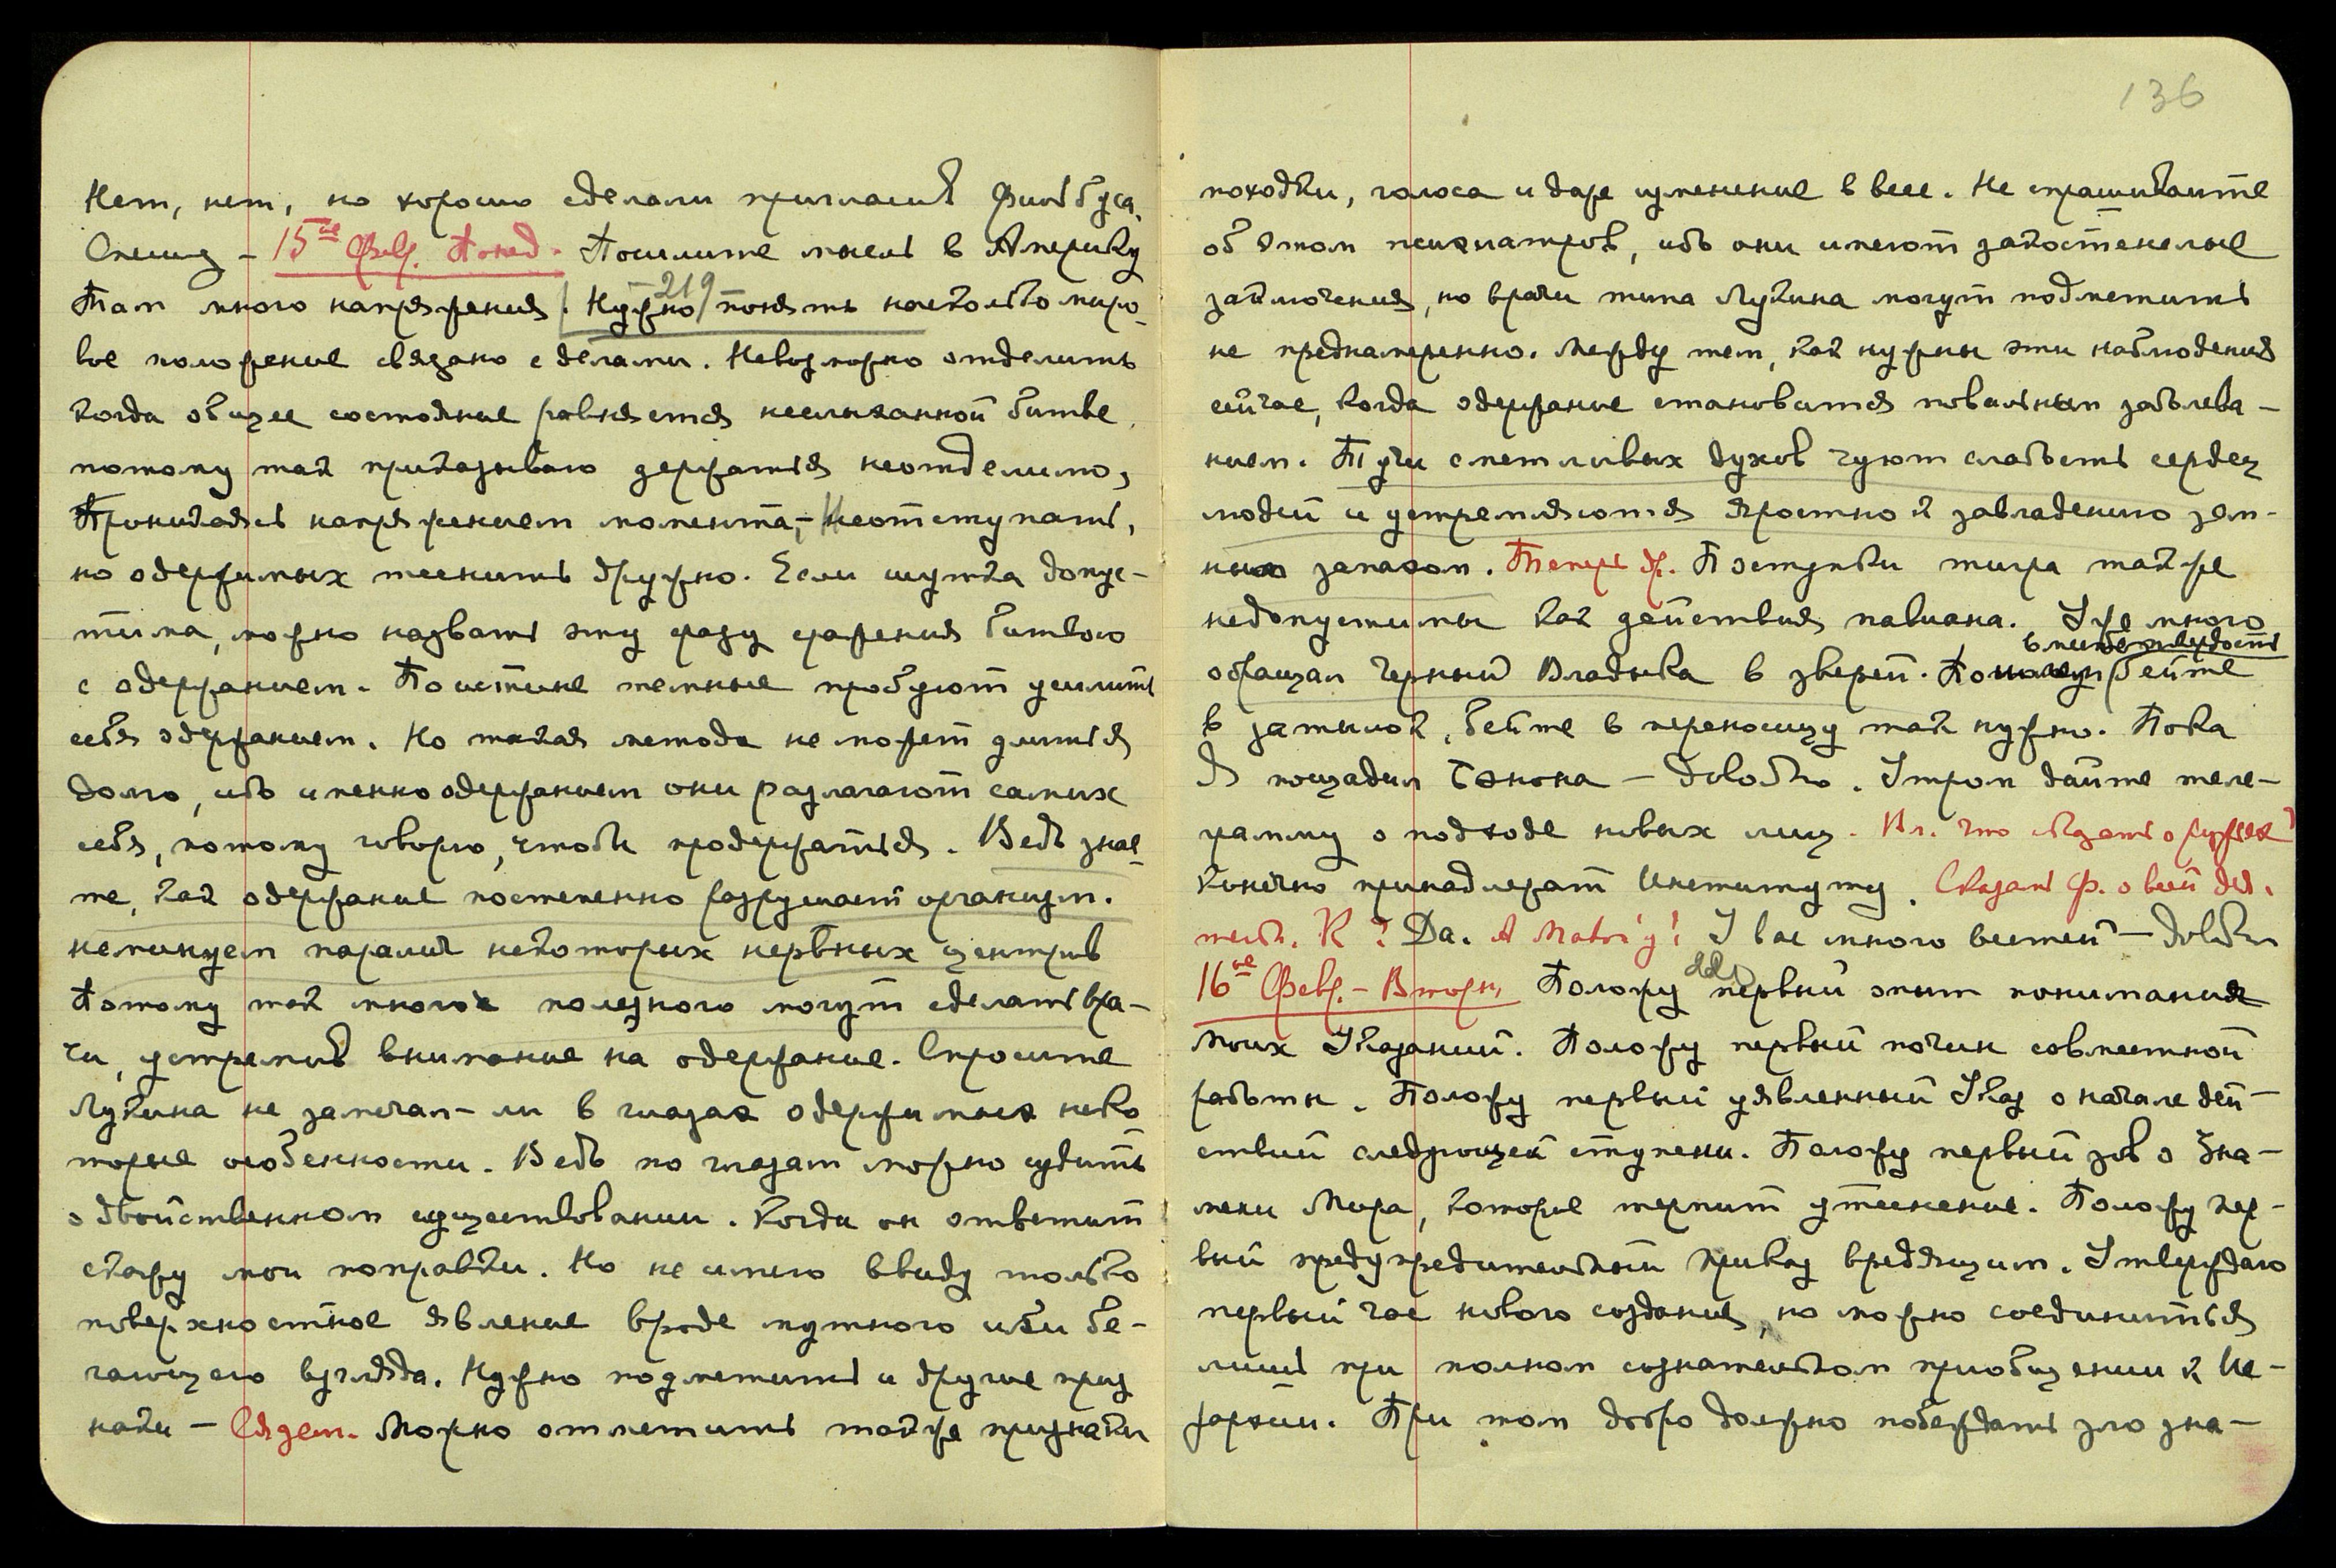 Нет, нет, но хорошо сделали пригласив Фильбуса.
Спешу – 15ое Февр. Понед. Пошлите мысль в Америку
219
Там много напряжения. Нужно понять насколько миро-
вое положение связано с делами. Невозможно отделить
когда общее состояние равняется неслыханной битве,
потому так приказываю держаться неотделимо,
Проникаясь напряжением момента, – Неотступать,
но одержимых теснить дружно. Если шутка допус-
тима, можно назвать эту фазу сражения битвою
с одержанием. Поистине темные пробуют усилить
себя одержанием. Но такая метода не может длиться
долго, ибо именно одержанием они разлагают самих
себя, потому говорю, чтобы продержаться. Ведь знае-
те, как одержание постепенно разрушает организм.
неминуем паралич некоторых нервных центров
Потому так много полезного могут сделать вра-
чи, устремив внимание на одержание. Спросите
Лукина не замечал-ли в глазах одержимых неко-
торые особенности. Ведь по глазам можно судить
о двойственном существовании. Когда он ответит
скажу мои поправки. Но не имею ввиду только
поверхностное явление вроде мутного или бе-
гающего взгляда. Нужно подметить и другие приз
наки – Сядем. Можно отметить также признаки
136
походки, голоса и даже изменение в весе. Не спрашивайте
об этом психиатров, ибо они имеют закостенелые
заключения, но врачи типа Лукина могут подметить
не преднамеренно. Между тем, как нужны эти наблюдения
сейчас, когда одержание становится повальным заболева-
нием. Тучи сметливых духов чуют слабость сердец
людей и устремляются яростно к завладению зем-
ным запасом. Теперь др. Поступки тигра также
недопустимы как действия павиана. Уже много
обращал Черный Владыка в зверей. бейте
в затылок, бейте в переносицу так нужно. Пока
Я пощадил – довольно. Утром дайте теле-
грамму о подходе новых лиц. Вл. что сказать о
Конечно принадлежат Институту. Сказать Ф. о всей дея-
тельн. К? Да. У вас много вестей – довольно
16ое Февр. – Вторн. Положу первый опыт понимания
Моих Указаний. Положу первый почин совместной
работы. Положу первый уявленный Указ о начале дей-
ствий следующей ступени. Положу первый зов о Зна-
мени Мира, которое терпит утеснение. Положу пер-
вый предупредительный приказ вредящим. Утверждаю
первый час нового создания, но можно соединиться
лишь при полном сознательном приобщении к Ие-
рархии. При том добро должно побеждать зло зна-